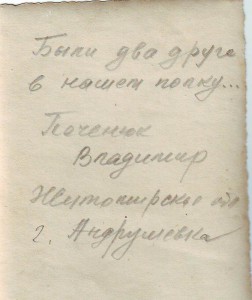 Были два друга
в нашем полку...
Поченюк
Владимир
Житомирская об
г. Андрушевка